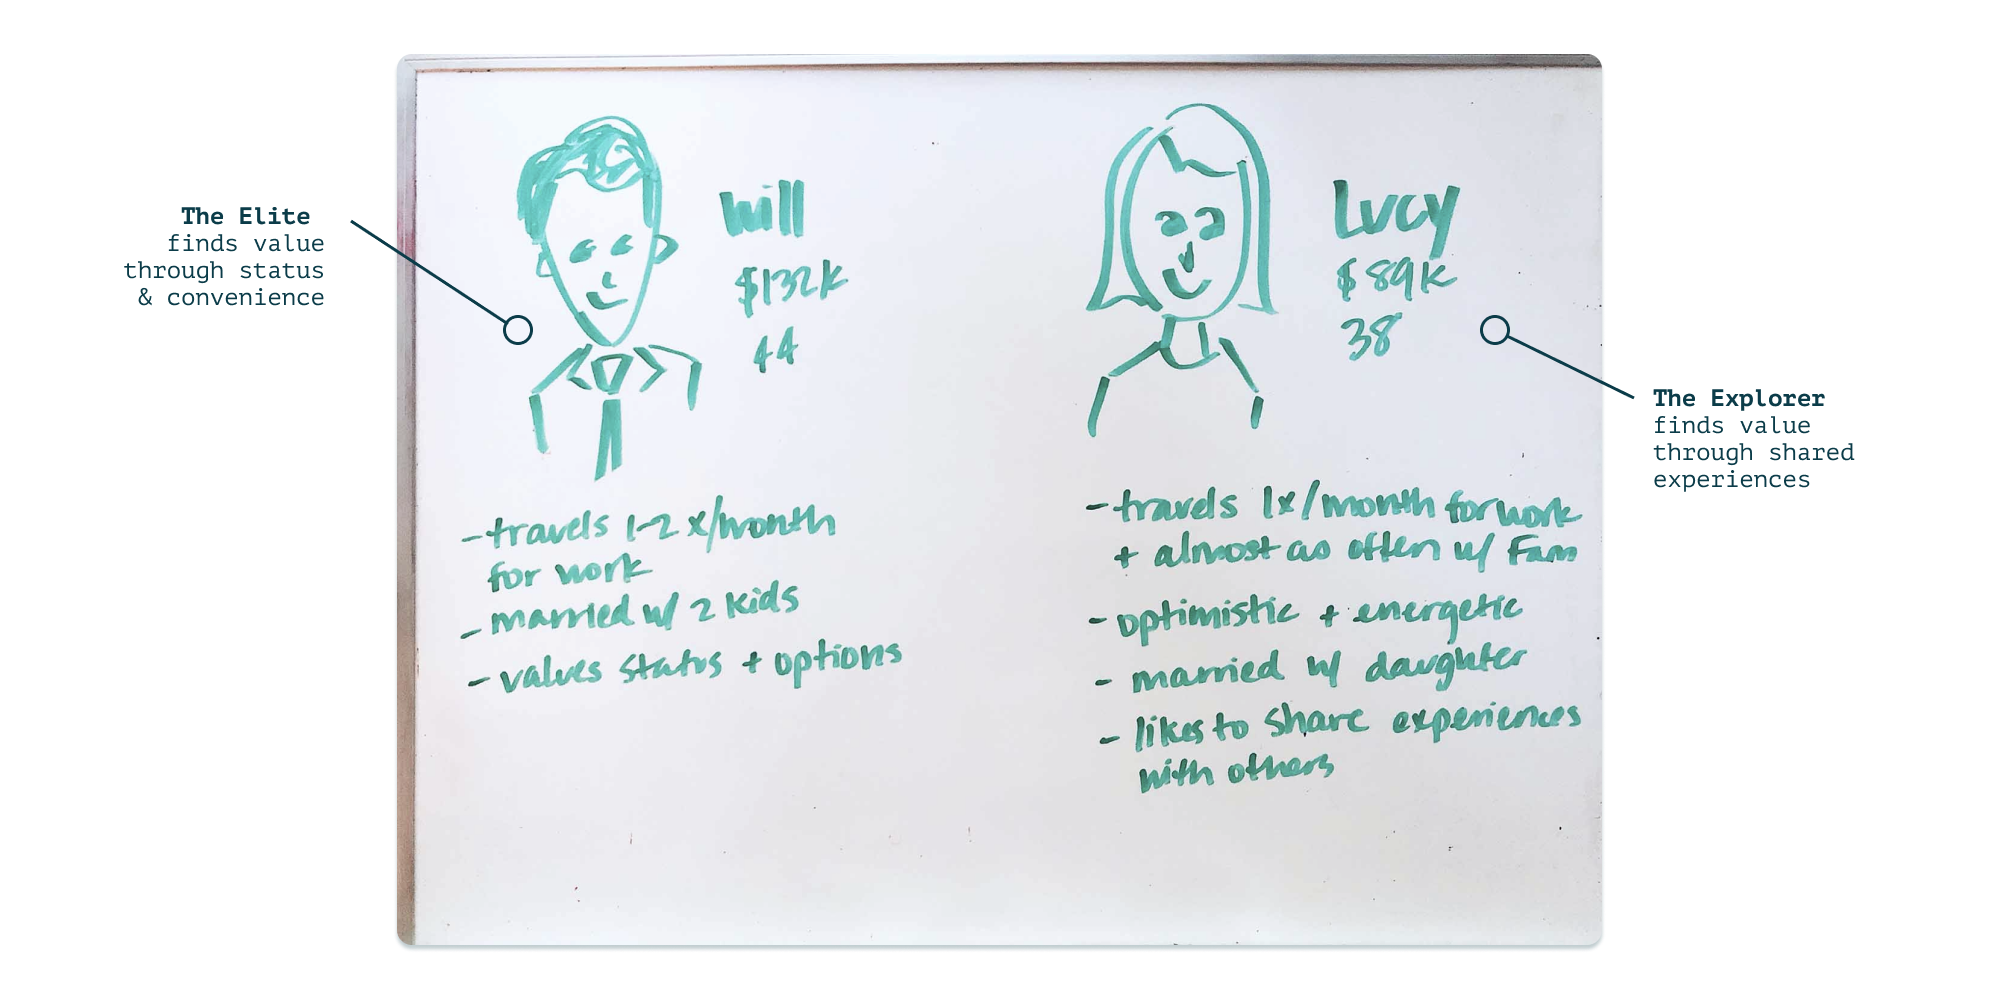 The Elite
finds value
through status
& convenience
Will
$132k
44
- travels 1-2 x/month
for work
- married w/ 2 kids
- values status + options
Lucy
$89k
38
- travels 1x/month for work
+ almost as often w/ Fam
- optimistic + energetic
- married w/ daughter
- likes to share experiences
with others
The Explorer
finds value
through shared
experiences